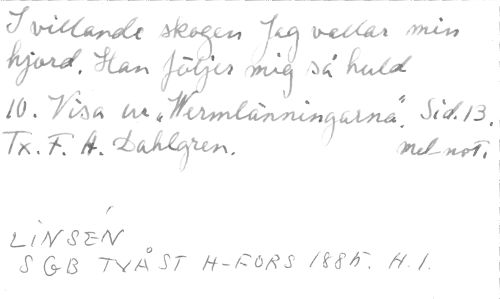 I villande skogen Jag vallar min
hjord. Han följer mig så huld
10. Visa ur „Wermlänningarna”. Sid. 13.
Tx. F. A. Dahlgren. mel-not.
LINSÉN
SGB TVÅST H-FORS 1885. H.1.